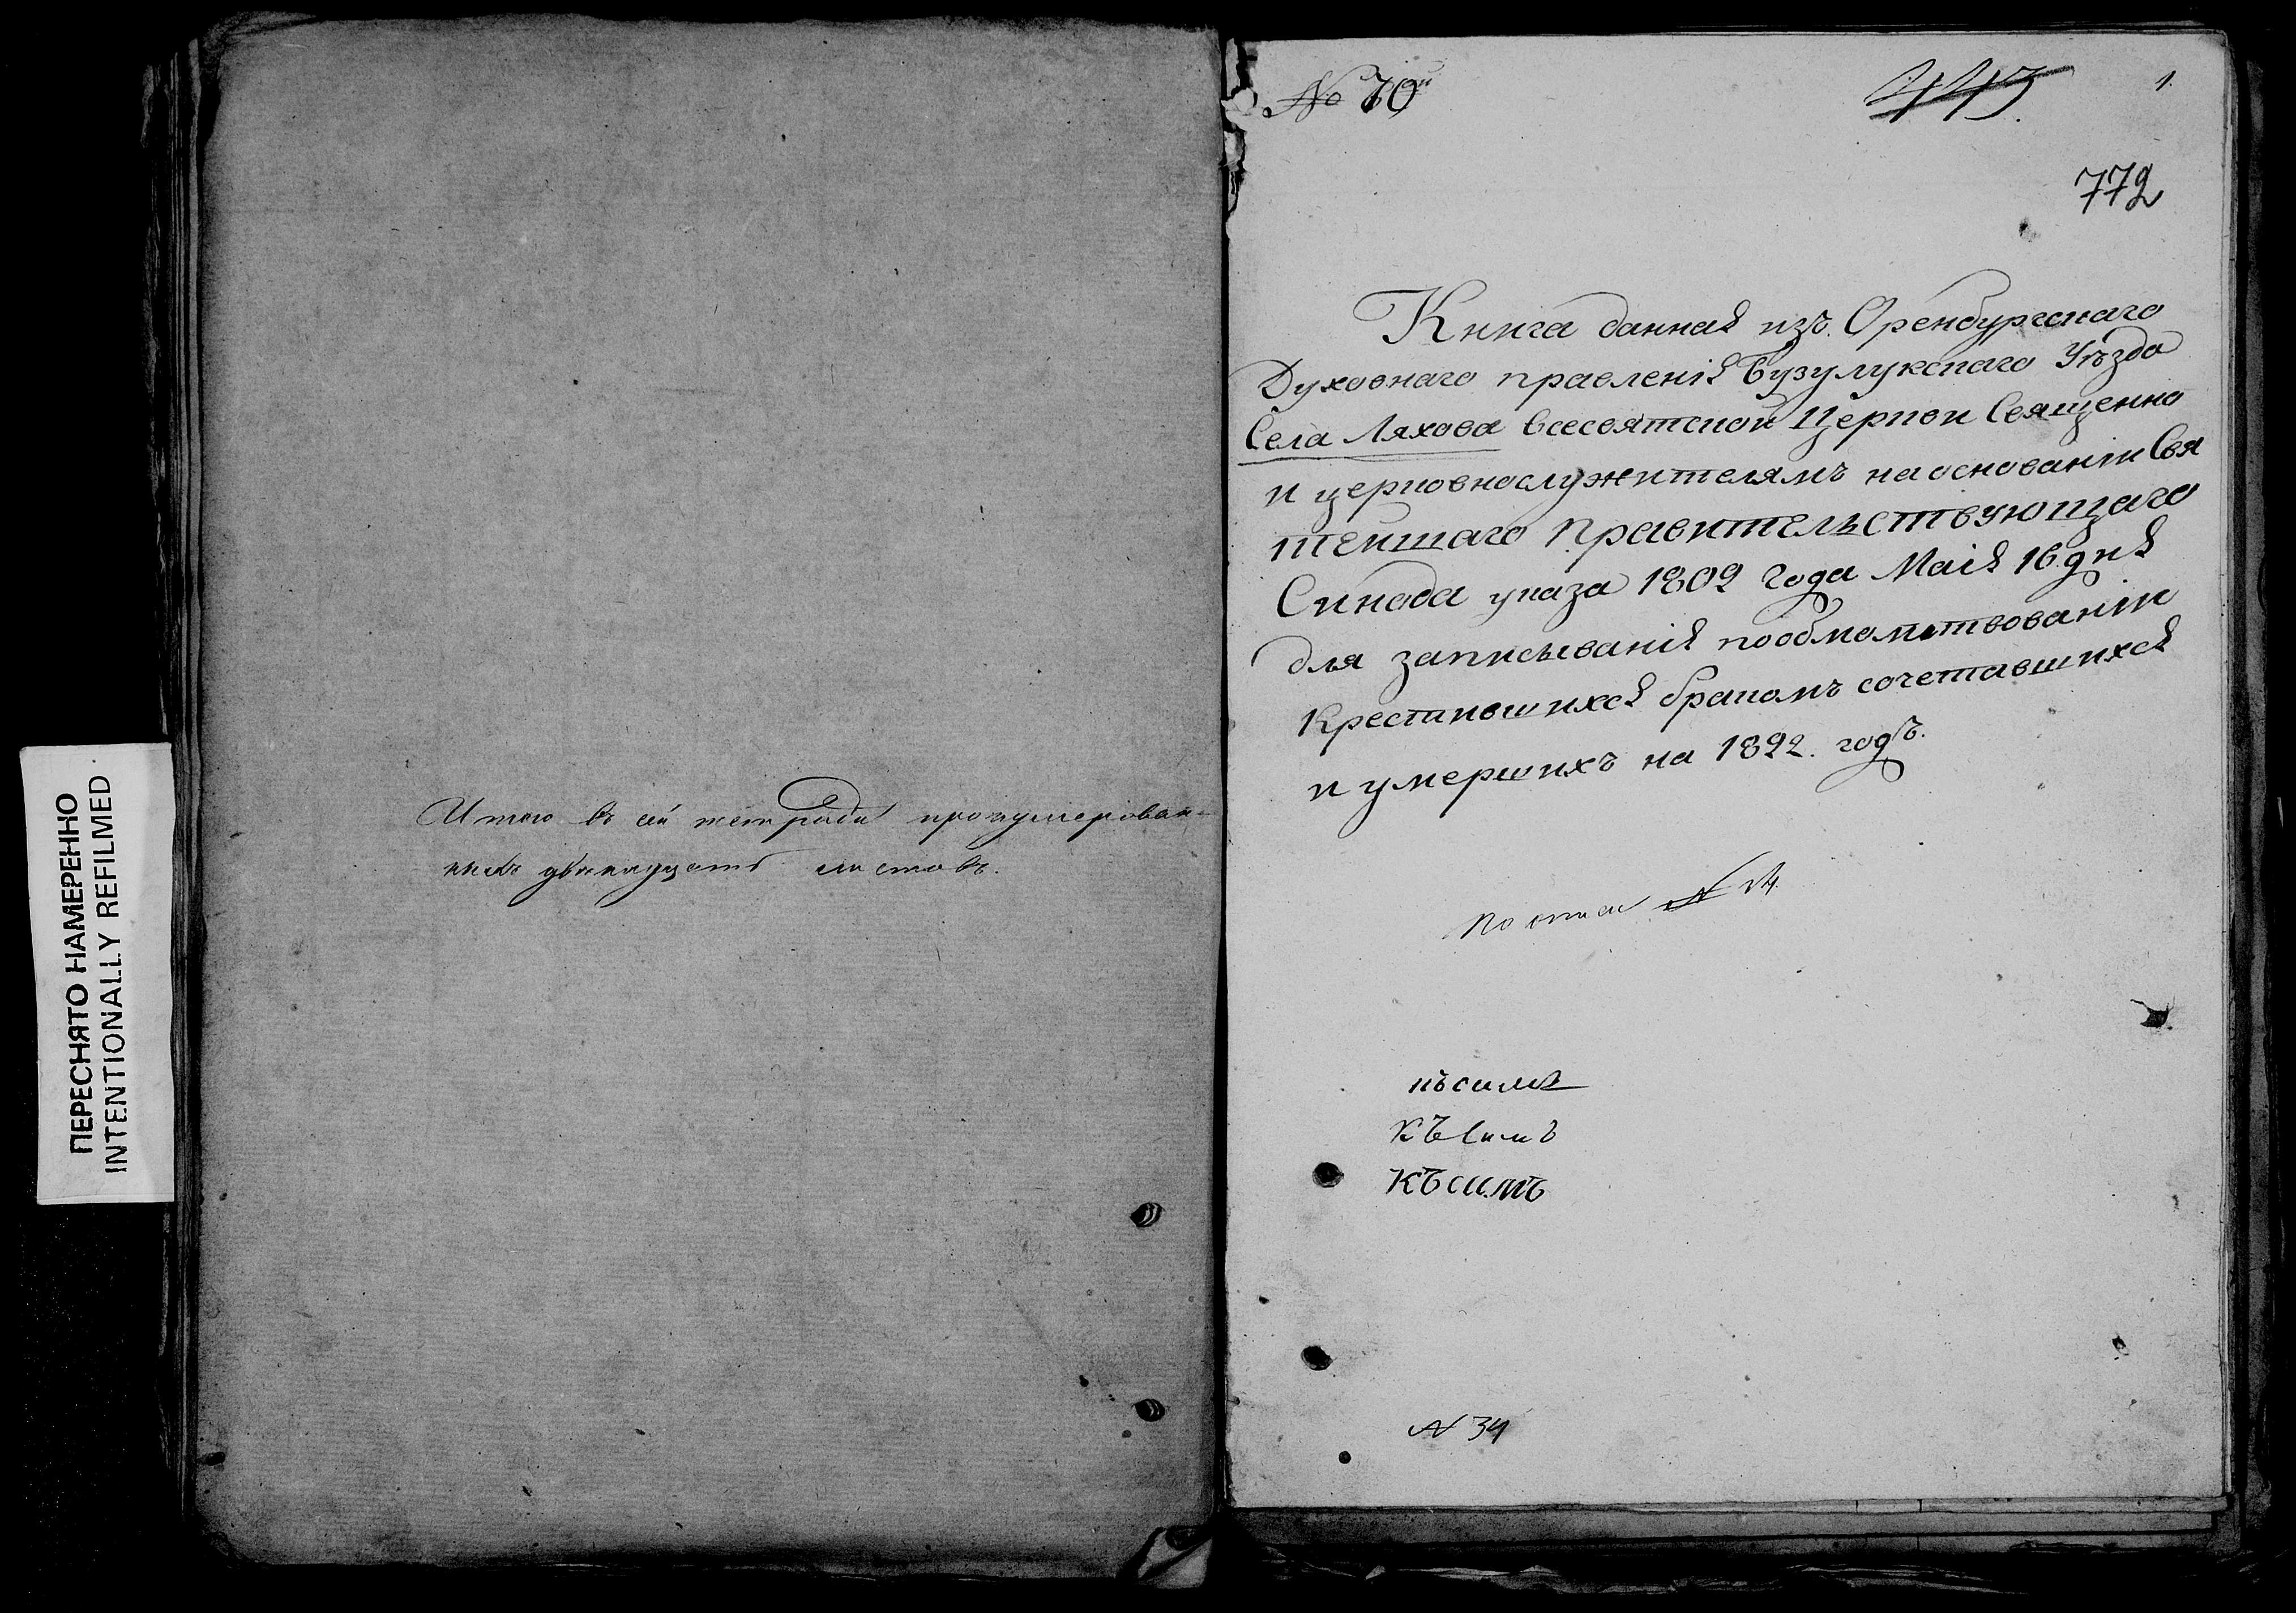 ПЕРЕСНЯТО НАМЕРЕННО
INTENTIONALLY REFILMED
Итого въ сей тетради пронумерован-
ныхъ двенадцать листовъ.
№ 70й
445
1.
772
Книга данная изъ Оренбургскаго
Духовнаго правленія Бузулукскаго Уѣзда
Села Ляхова Всесвятской Церкви Священно
и церковнослужителямъ на основаніи Свя
тейшаго Правительствующаго
Синода указа 1802 года Маія 16 дня
для записыванія
крестившихся бракомъ сочетавшихся
и умершихъ на 1822. годъ.
По описи №
къ симъ
къ симъ
къ симъ
N 34